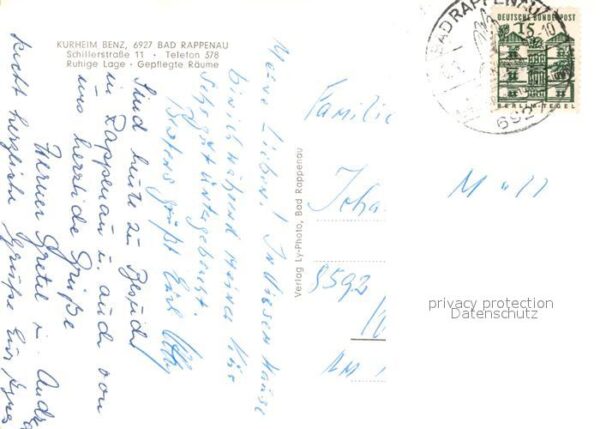 KURHEIM BENZ, 6927 BAD RAPPENAU
Schillerstraße 11 • Telefon 578
Ruhige Lage • Gepflegte Räume
Meine Lieben! In diesem Hause
bin ich während meiner Kur
sehr gut untergebracht.
Bestens grüßt Euch
Sind heute zu Besuch
in Rappenau u. auch von
uns herzliche Grüße
Gretel u.
recht herzliche Grüße
Verlag Ly-Photo, Bad Rappenau
Familie
Joha
Müll
8592
BAD RAPPENAU
15-10
6927
DEUTSCHE BUNDESPOST
BERLIN-TEGEL
privacy protection
Datenschutz